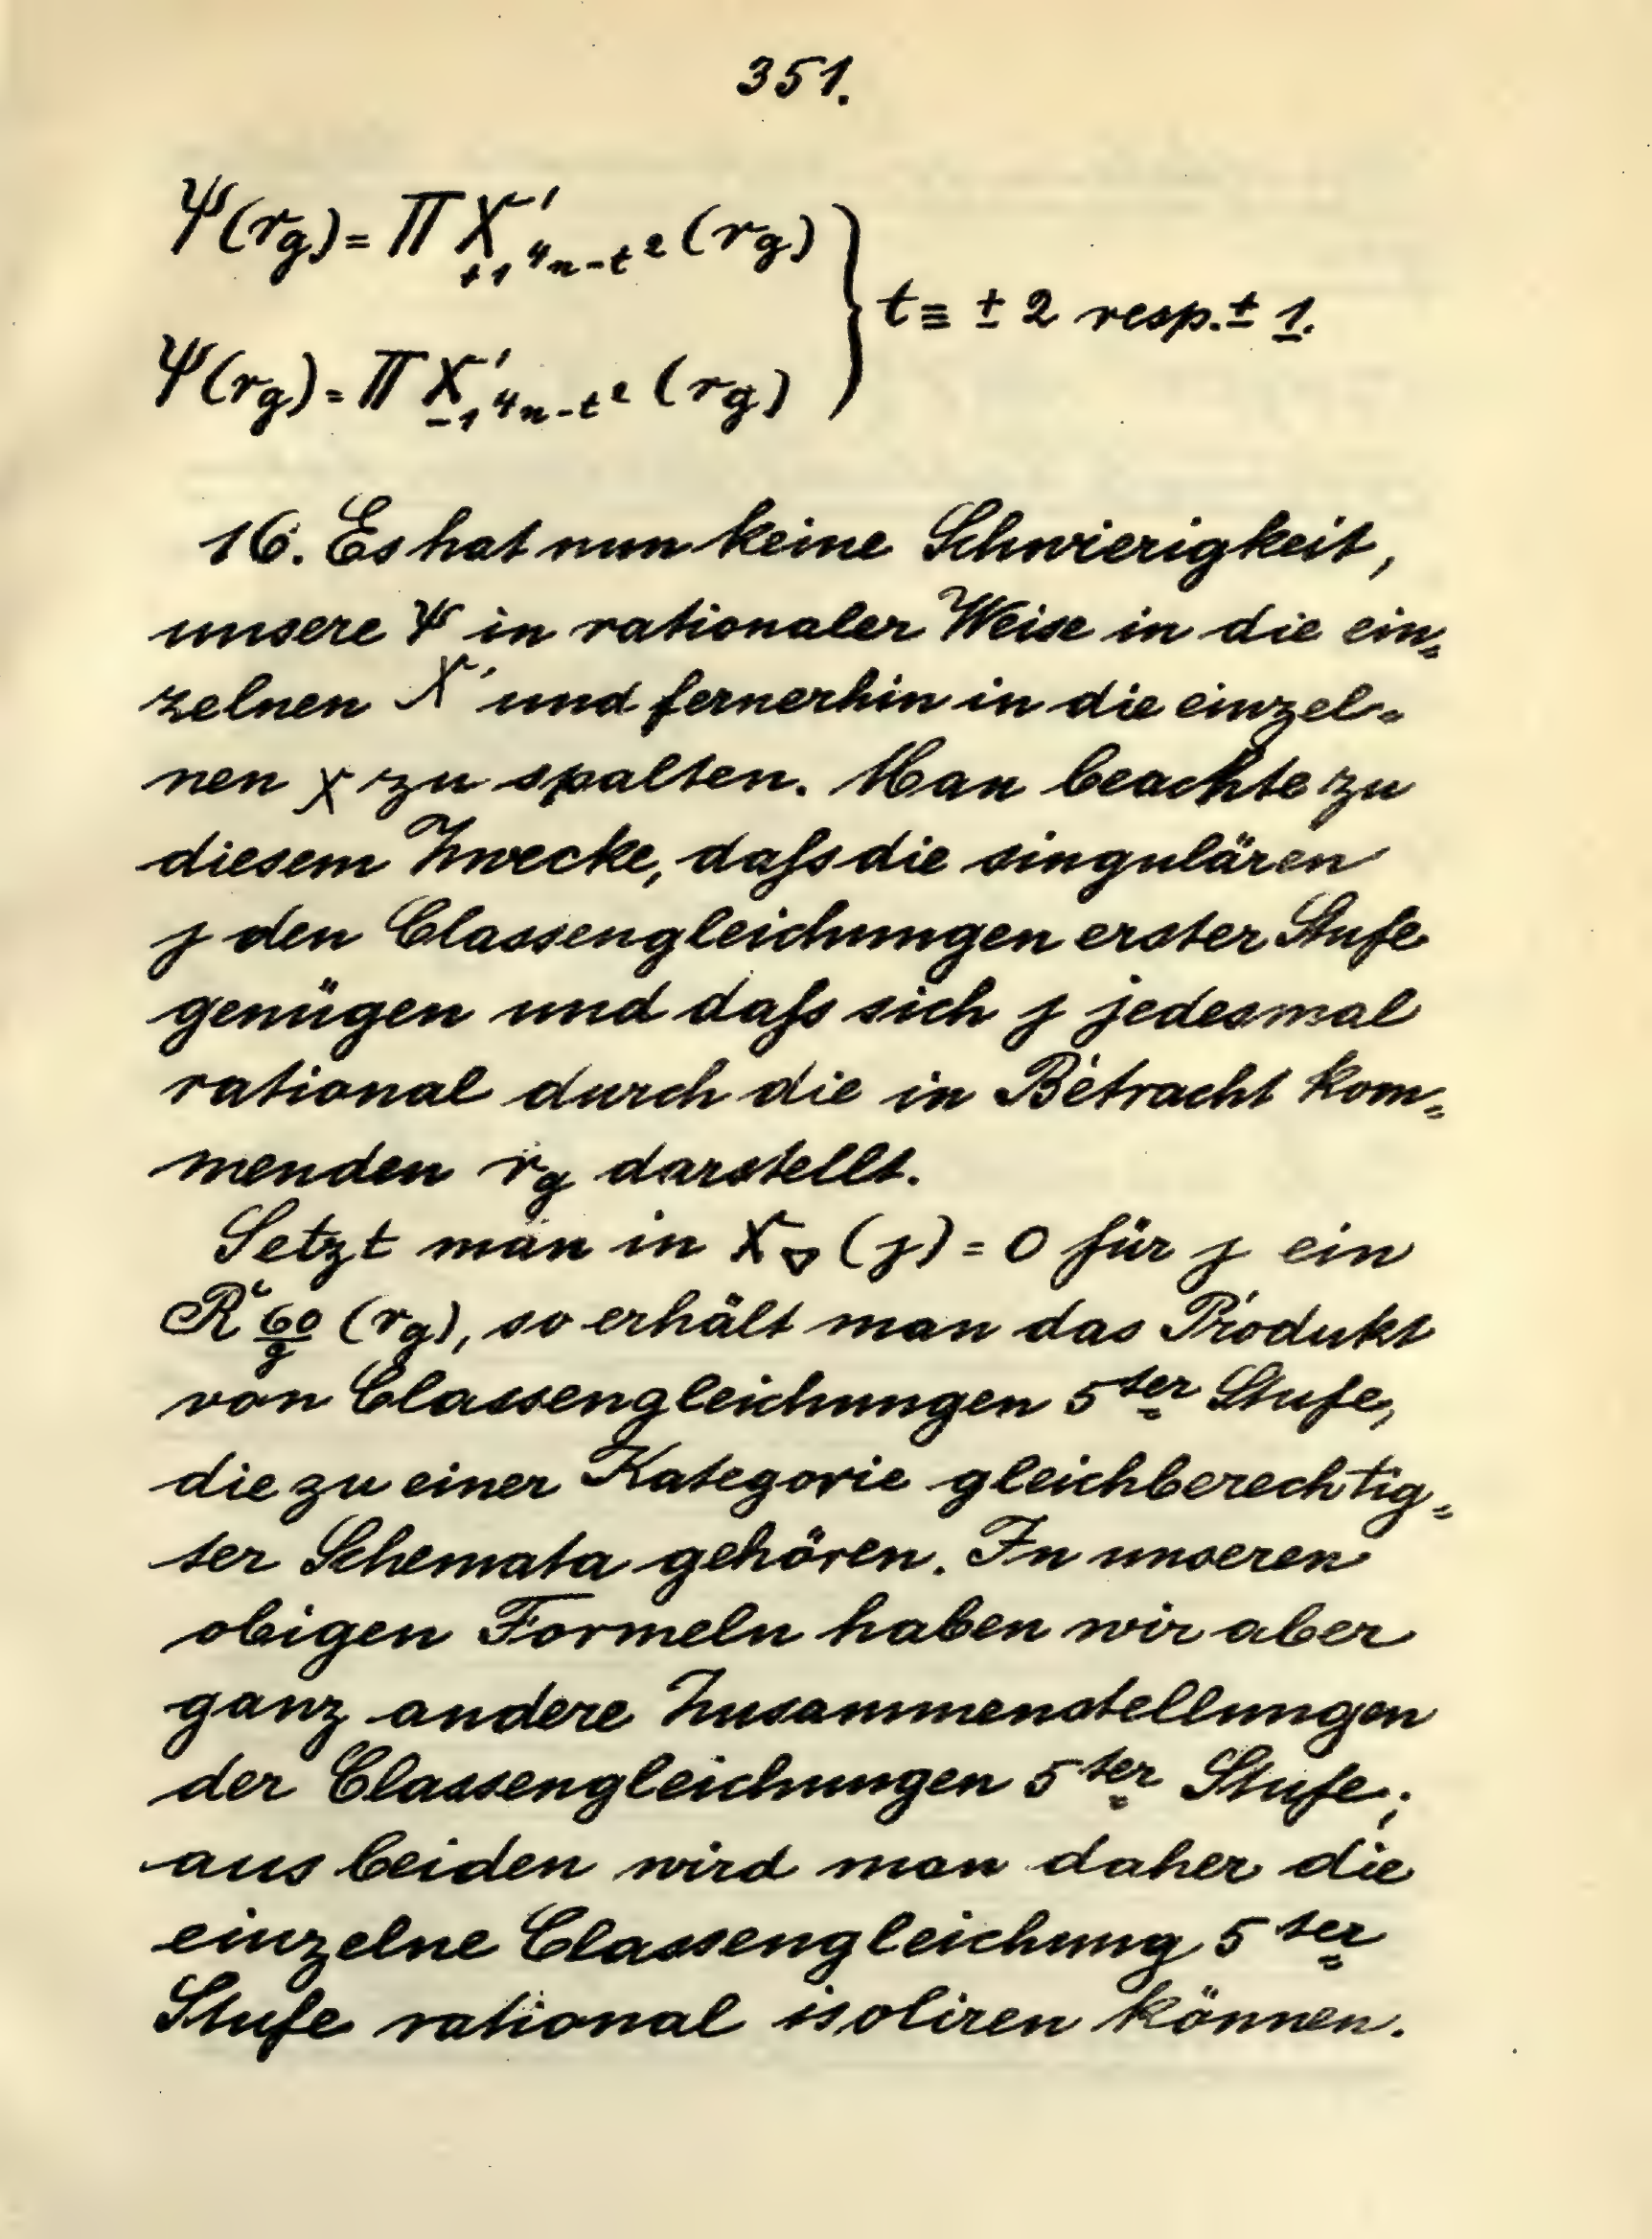 351.
Ψ(r_g) = Π X'_{+1, 4n-t²} (r_g)
t ≡ ± 2 resp. ± 1.
Ψ(r_g) = Π X'_{-1, 4n-t²} (r_g)
16. Es hat nun keine Schwierigkeit,
unsere Ψ in rationaler Weise in die ein=
zelnen X' und fernerhin in die einzel=
nen χ zu spalten. Man beachte zu
diesem Zwecke, daſs die singulären
j den Classengleichungen erster Stufe
genügen und daſs sich j jedesmal
rational durch die in Betracht kom=
menden r_g darstellt.
Setzt man in X_∇ (j) = 0 für j ein
R_{60/g} (r_g), so erhält man das Produkt
von Classengleichungen 5ter Stufe,
die zu einer Kategorie gleichberechtig=
ter Schemata gehören. In unseren
obigen Formeln haben wir aber
ganz andere Zusammenstellungen
der Classengleichungen 5ter Stufe;
aus beiden wird man daher die
einzelne Classengleichung 5ter
Stufe rational isoliren können.